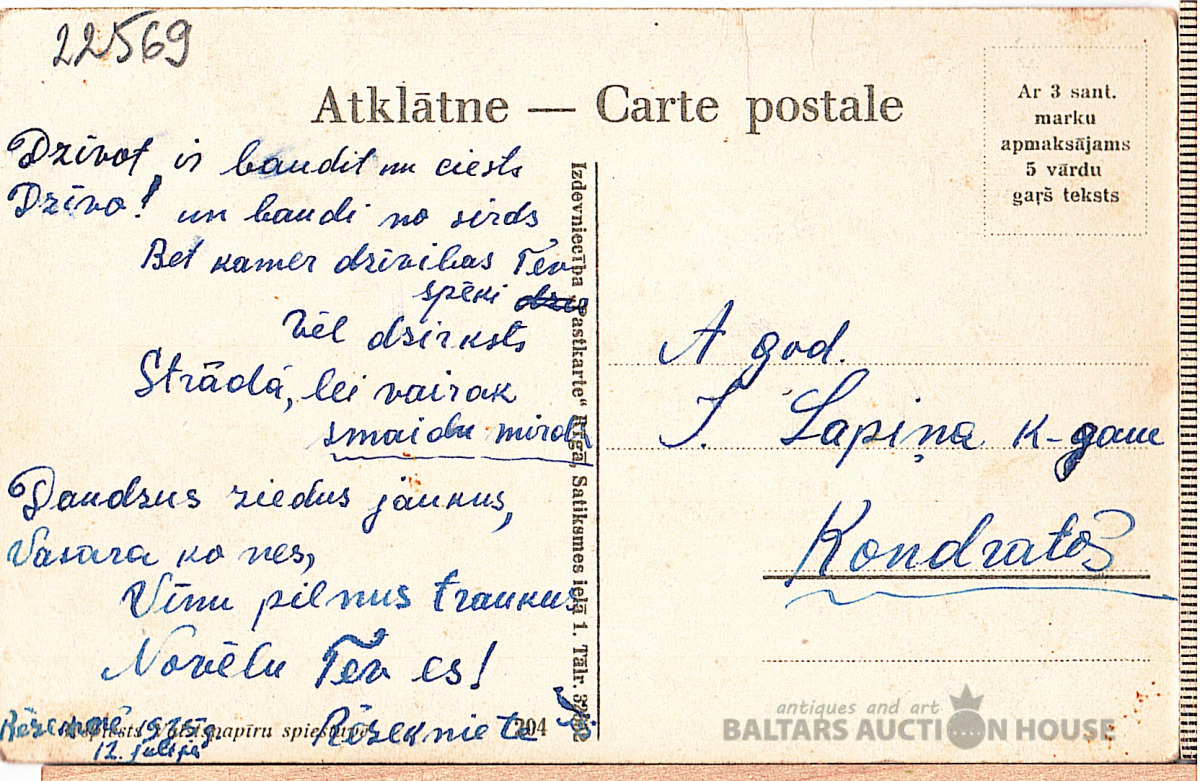 22569
Atklātne — Carte postale
Ar 3 sant.
marku
apmaksājams
5 vārdu
gaŗš teksts
Dzīvot, ir baudit un ciests
Dzīvo! un baudi no sirds
Bet kamer dzīvibas Tev
spēki
Vēl dzirksts
Strādā, lei vairak
smaidu mirdz
Daudzus ziedus jaukus,
Vasara ko nes,
Vīnu pilnus traukus
Novēlu Tev es!
Rēzekniete
12. julijā
Izdevniecība „Pastkarte“ Rīgā, Satiksmes ielā 1. Tālr.
A god.
J. Lapiņa k-gam
Kondratos
antiques and art
BALTARS AUCTION HOUSE